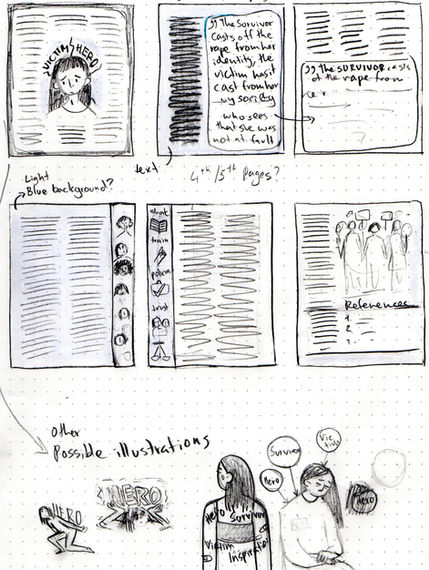 VICTIM/HERO
,, The Survivor
casts off the
rape from her
identity, the
victim hasit
cast from her
by society
who sees
that she was
not at fault
,, the SURVIVOR casts
of the rape from
text
4th / 5th Pages?
Light
Blue background?
train
police
trust
References
1.
2
Other
Possible illustrations
HERO
HERO
Hero Survivor
Victim
Inspiration
Hero
Survivor
Vic
tim
Hero